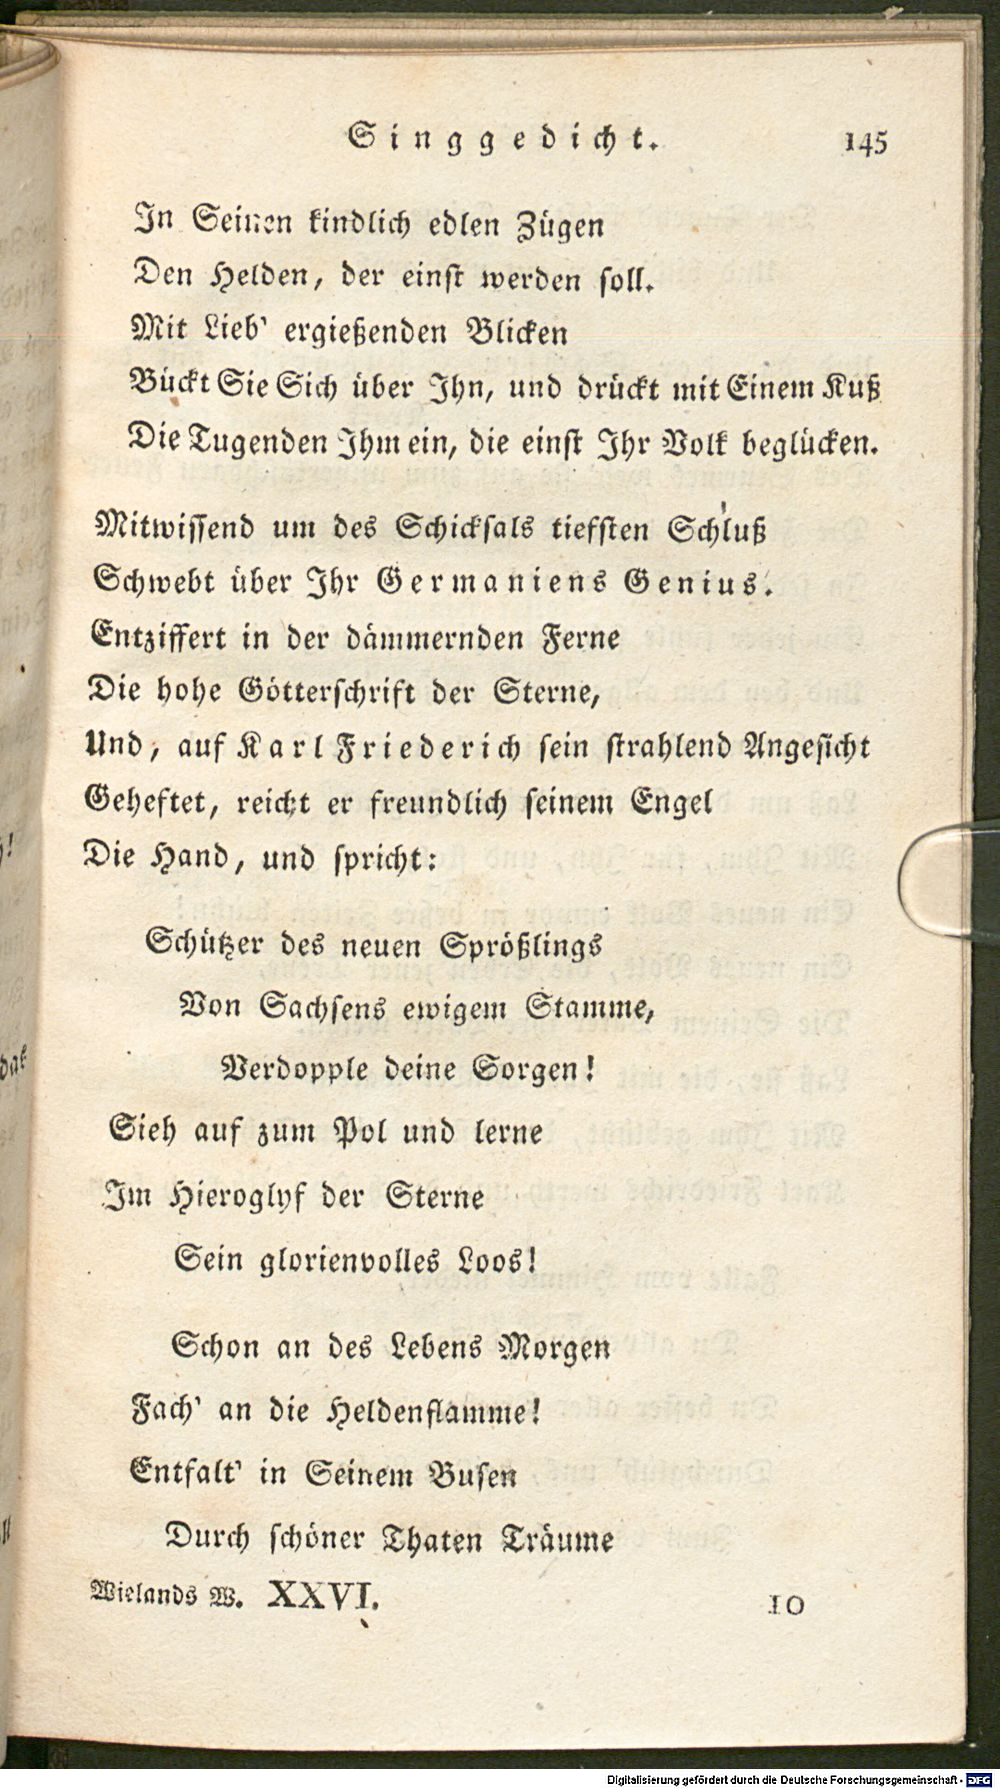 Singgedicht. 145
In Seinen kindlich edlen Zügen
Den Helden, der einst werden soll.
Mit Lieb' ergießenden Blicken
Bückt Sie Sich über Ihn, und drückt mit Einem Kuß
Die Tugenden Ihm ein, die einst Ihr Volk beglücken.
Mitwissend um des Schicksals tiefsten Schluß
Schwebt über Ihr Germaniens Genius.
Entziffert in der dämmernden Ferne
Die hohe Götterschrift der Sterne,
Und, auf Karl Friederich sein strahlend Angesicht
Geheftet, reicht er freundlich seinem Engel
Die Hand, und spricht:
Schützer des neuen Sprößlings
Von Sachsens ewigem Stamme,
Verdopple deine Sorgen!
Sieh auf zum Pol und lerne
Im Hieroglyf der Sterne
Sein glorienvolles Loos!
Schon an des Lebens Morgen
Fach' an die Heldenflamme!
Entfalt' in Seinem Busen
Durch schöner Thaten Träume
Wielands W. XXVI. 10
Digitalisierung gefördert durch die Deutsche Forschungsgemeinschaft - DFG